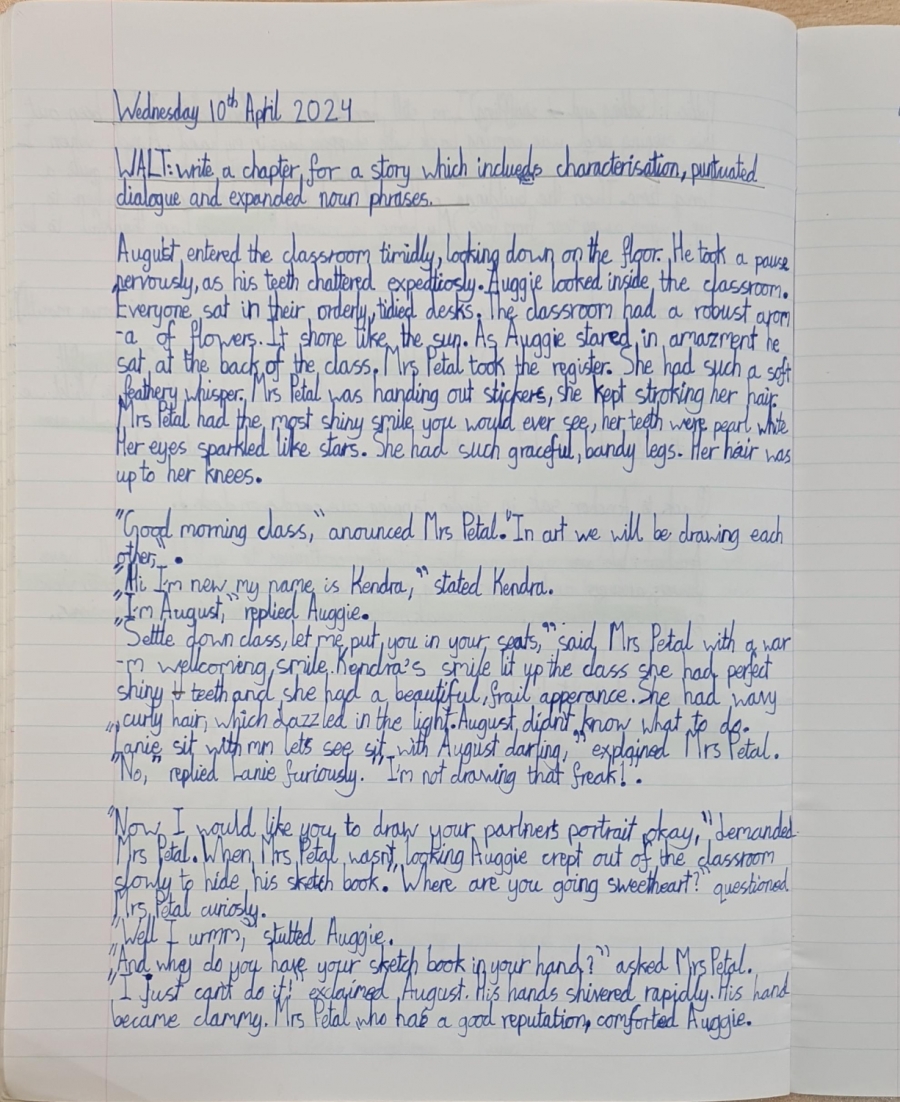 Wednesday 10th April 2024
WALT: write a chapter for a story which includes characterisation, puntuated
dialogue and expanded noun phrases.
August entered the classroom timidly, looking down on the floor. He took a pause
nervously, as his teeth chattered expedtiosly. Auggie looked inside the classroom.
Everyone sat in their orderly, tidied desks. The classroom had a robust arom
-a of flowers. It shone like the sun. As Auggie stared in amazment he
sat at the back of the class. Mrs Petal took the register. She had such a soft
feathery whisper. Mrs Petal was handing out stickers, she kept stroking her hair.
Mrs Petal had the most shiny smile you would ever see, her teeth were pearl white
Her eyes sparkled like stars. She had such graceful, bandy legs. Her hair was
up to her knees.
"Good morning class," anounced Mrs Petal. "In art we will be drawing each
other,".
"Hi I'm new my name is Kendra," stated Kendra.
"I'm August," replied Auggie.
"Settle down class, let me put you in your seats," said Mrs Petal with a war
-m wellcoming smile. Kendra's smile lit up the class she had perfect
shiny teeth and she had a beautiful, frail apperance. She had wavy
curly hair, which dazzled in the light. August didn't know what to do.
"Lanie sit with mm lets see sit with August darling," explained Mrs Petal.
"No," replied Lanie furiously. "I'm not drawing that freak!.
"Now I would like you to draw your partners portrait okay," demanded
Mrs Petal. When Mrs Petal wasn't looking Auggie crept out of the classroom
slowly to hide his sketch book. "Where are you going sweetheart?" questioned
Mrs Petal curiosly.
"Well I urmm," stutted Auggie.
"And why do you have your sketch book in your hand?" asked Mrs Petal.
"I just can't do it!" exclaimed August. His hands shivered rapidly. His hand
became clammy. Mrs Petal who has a good reputation, comforted Auggie.